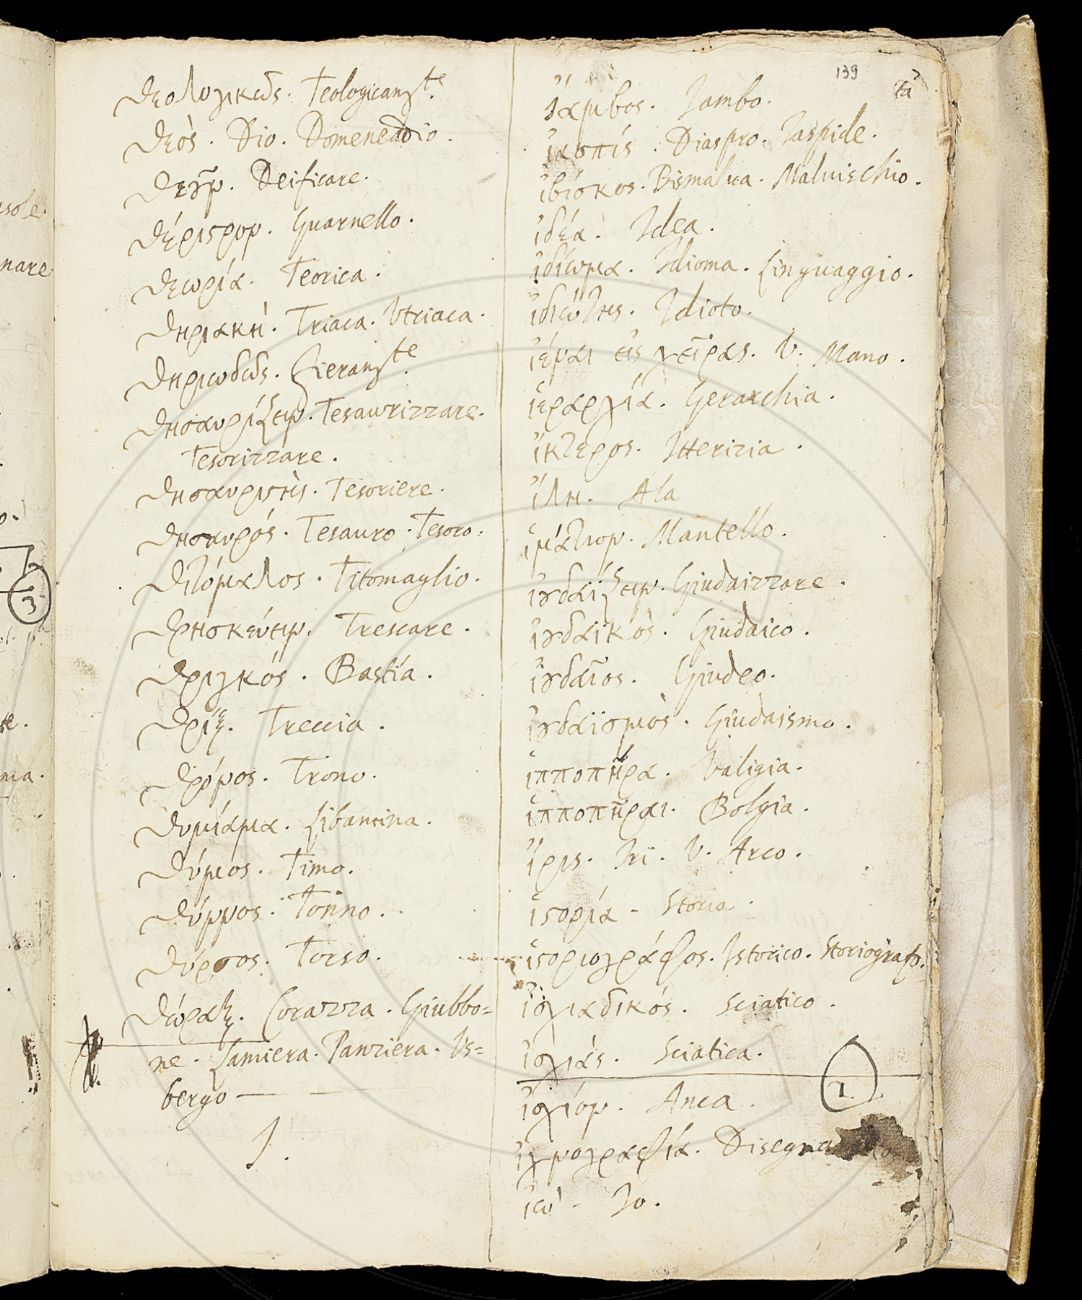 θεολογικῶς. Teologicam.te
θεός. Dio. Domenedio.
θεοῦν. Deificare.
θέριστρον. Guarnello.
θεωρία. Teorica.
θηριακή. Triaca. Utriaca.
θηριωδῶς. Fieram.te
θησαυρίζειν. Tesaurizzare.
Tesorizzare.
θησαυριστὴς. Tesoriere.
θησαυρός. Tesauro. Tesoro.
θιτόμαλος. Titomaglio.
θρησκεύειν. Trescare.
θριγκός. Bastía.
θρίξ. Treccia.
θρόνος. Trono.
θυμίαμα. Libantina.
θύμος. Timo.
θύννος. Tonno.
θύρσος. Torso.
θώραξ. Corazza. Giubbo=
ne. Lamiera. Panziera. Us=
bergo
139
ἴαμβος. Jambo.
ἴασπίς. Diaspro. Jaspide.
ἰβίσκος. Bismalva. Malvischio.
ἰδέα. Idea.
ἰδίωμα. Idioma. Linguaggio.
ἰδιώτης. Idioto.
ἰέναι εἰς χεῖρας. V. Mano.
ἱεραρχία. Gerarchia.
ἴκτερος. Itterizia.
ἴλη. Ala
ἱμάτιον. Mantello.
ἰουδαΐζειν. Giudaizzare.
ἰουδαϊκὸς. Giudaico.
ἰουδαῖος. Giudeo.
ἰουδαϊσμὸς. Giudaismo.
ἱπποπῆρα. Valigia.
ἱπποπῆραι. Bolgia.
ἴρις. Iri. V. Arco.
ἱστορία. Storia.
ἱστοριογράφος. Istorico. Storiografo.
ἰσχιαδικός. Sciatico.
ἰσχιάς. Sciatica.
1
ἰσχίον. Anca.
ἰχνογραφία.
ἰώ. Io.
3